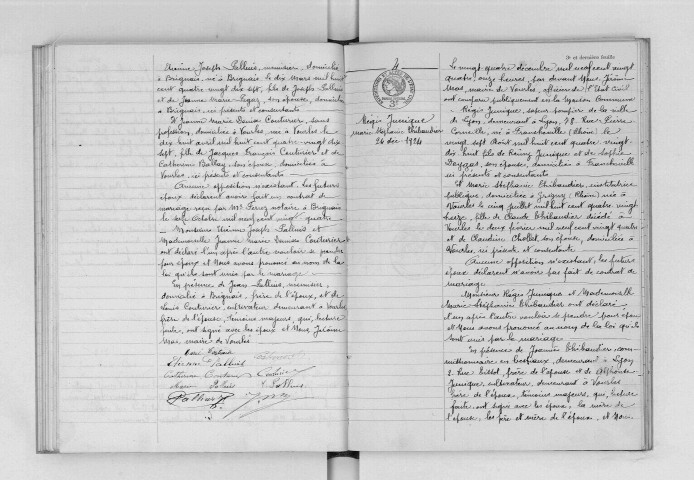 Etienne Joseph Palluis, menuisier, domicilié
à Brignais, né à Brignais le dix Mars mil huit
cent quatre vingt dix sept, fils de Joseph Palluis
et de Jeanne Marie son épouse, domiciliés
à Brignais, ici présents et consentants
Et Jeanne Marie Denise Couturier, sans
profession, domiciliée à Vourles, née à Vourles le
dix huit avril mil huit cent quatre-vingt-dix
sept, fille de Jacques François Couturier et de
Catherine son épouse domiciliés à
Vourles, ici présents et consentants
Aucune opposition n'existant, les futurs
époux déclarent avoir fait un contrat de
mariage reçu par Me notaire à Brignais
le Octobre mil neuf cent vingt quatre
Monsieur Etienne Joseph Palluis et
Mademoiselle Jeanne Marie Denise Couturier
ont déclaré l'un après l'autre vouloir se prendre
pour époux et Nous avons prononcé au nom de la
loi qu'ils sont unis par le mariage
En présence de Jean Palluis, menuisier,
domicilié à Brignais, frère de l'époux, et de
Louis Couturier, cultivateur demeurant à Vourles
frère de l'épouse, témoins majeurs, qui, lecture
faite, ont signé avec les époux et Nous Jérôme
Mas, maire de Vourles
4
Régis Junique
Marie Stéphanie Thibaudier
24 déc. 1924
et dernière feuille
Le vingt quatre décembre mil neuf cent vingt
quatre, onze heures, par devant Nous, Jérôme
Mas, maire de Vourles, officier de l'Etat Civil
ont comparu publiquement en la Maison Commune
Régis Junique, sapeur pompier de la ville
de Lyon, demeurant à Lyon, 78 Rue Pierre
Corneille, né à Francheville (Rhône) le
vingt sept Août mil huit cent quatre vingt
dix huit fils de Rémy Junique et de Sophie
son épouse, domiciliés à Francheville
ici présents et consentants
Et Marie Stéphanie Thibaudier, institutrice
publique, domiciliée à Grigny (Rhône) née à
Vourles le cinq juillet mil huit cent quatre vingt
seize, fille de Claude Thibaudier décédé à
Vourles le deux février mil neuf cent vingt quatre
et de Claudine Chollet, son épouse, domiciliée à
Vourles, ici présente et consentante
Aucune opposition n'existant, les futurs
époux déclarent n'avoir pas fait de contrat de
mariage
Monsieur Régis Junique et Mademoiselle
Marie Stéphanie Thibaudier ont déclaré
l'un après l'autre vouloir se prendre pour époux
et Nous avons prononcé au nom de la loi qu'ils
sont unis par le mariage
En présence de Joannès Thibaudier, com-
missionnaire en bestiaux, demeurant à Lyon
2 Rue frère de l'épouse et de Alphonse
Junique, cultivateur, demeurant à Vourles
frère de l'époux, témoins majeurs, qui, lecture
faite ont signé avec les époux, la mère de
l'épouse, les père et mère de l'époux, et Nous